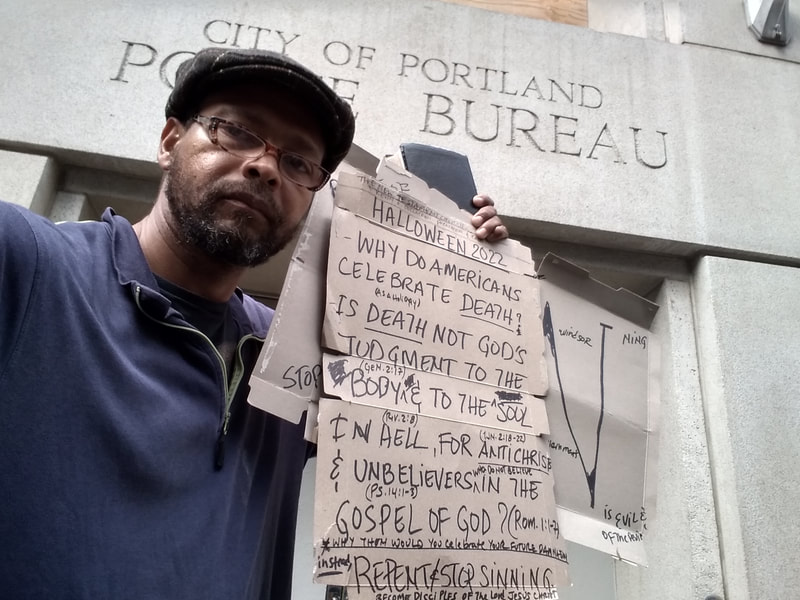 CITY OF PORTLAND
BUREAU
HALLOWEEN 2022
-WHY DO AMERICANS
CELEBRATE DEATH?
(AS A HOLIDAY)
IS DEATH NOT GOD'S
JUDGMENT TO THE
(GEN. 2:17)
BODY & TO THE SOUL
(REV. 2:8)
IN HELL, FOR ANTICHRIST
(1JN. 2:18-22)
& UNBELIEVERS IN THE
WHO DO NOT BELIEVE
(PS. 14:1-3)
GOSPEL OF GOD? (ROM. 1:1-
* WHY THEN WOULD YOU CELEBRATE YOUR FUTURE
instead
REPENT & STOP SINNING
BECOME DISCIPLES OF THE LORD JESUS CHRIST
STOP
windsor
NING
IS EVIL &
OF THE